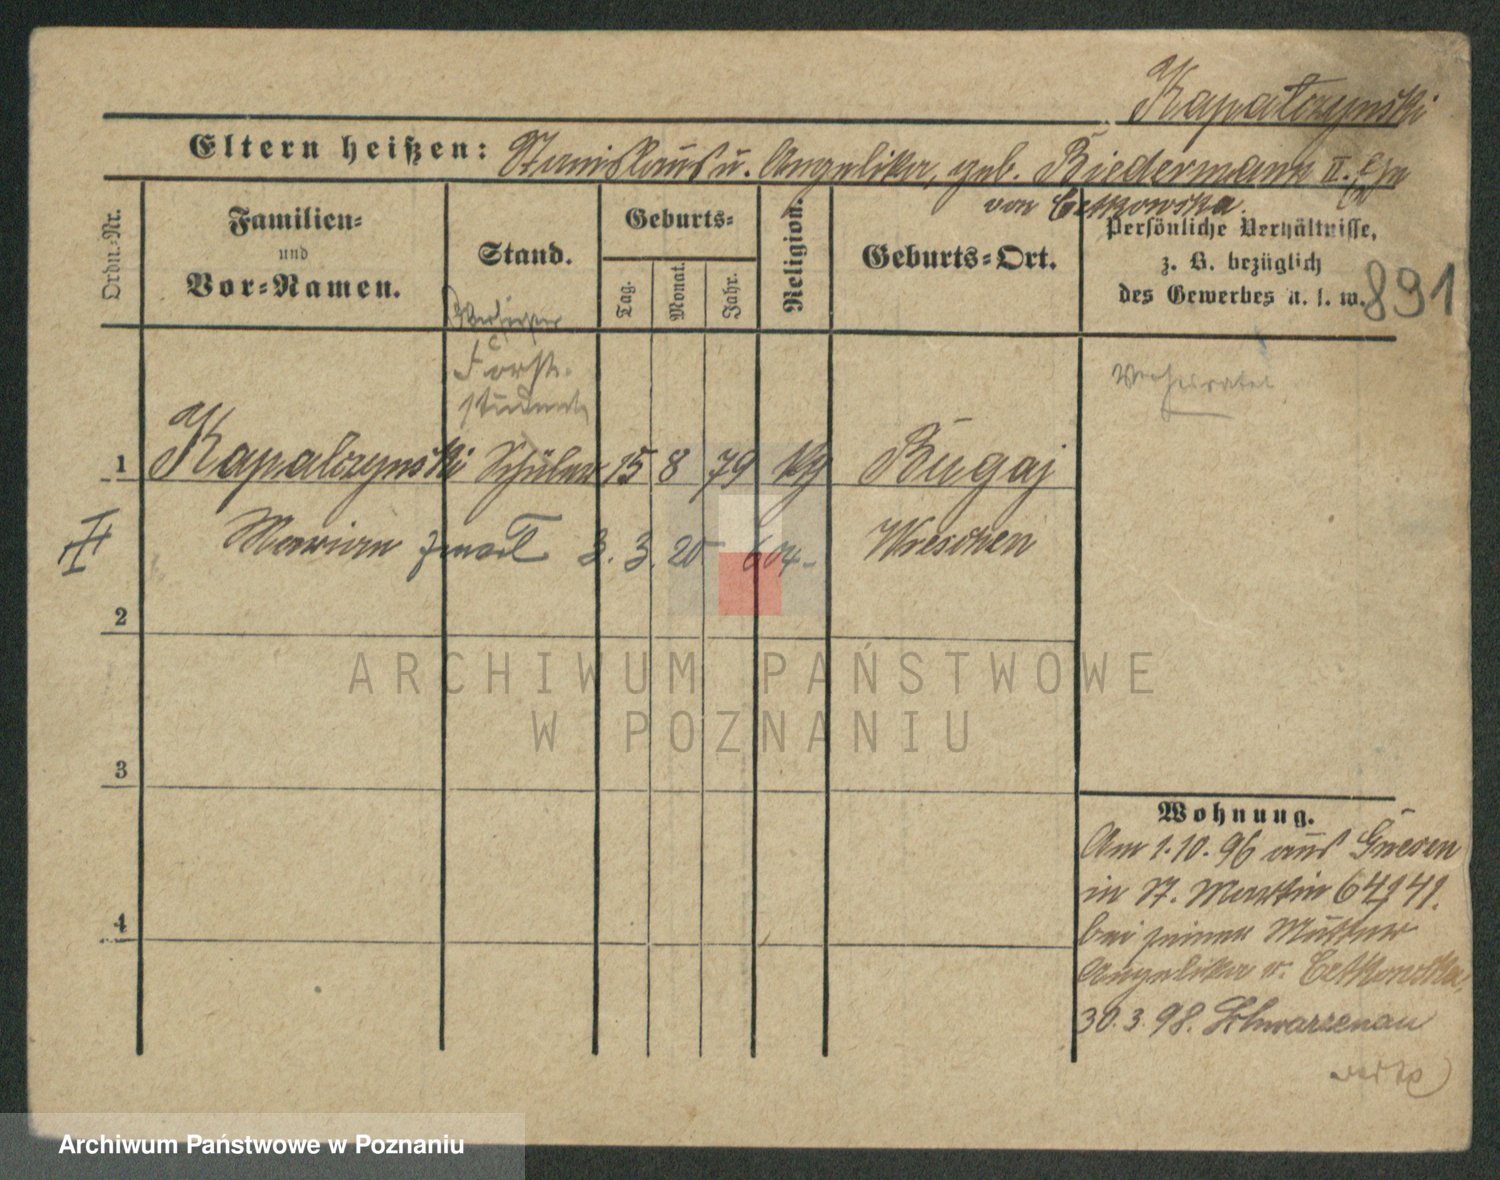 Kapalczynski
Eltern heißen: Stanislaus u. Angelika, geb. Biedermann II. Ehe
von Cetkowska.
Ordn.-Nr.
Familien-
und
Vor-Namen.
Stand.
Geburts-
Tag.
Monat.
Jahr.
Religion.
Geburts-Ort.
Persönliche Verhältnisse,
z. B. bezüglich
des Gewerbes u. s. w.
891
Forst-
student
Verheiratet
1 Kapalczynski Schüler 15 8 79 Kg Bugaj
II Marian 3. 3. 20 604 Wreschen
2
3
4
Wohnung.
Am 1.10.96 aus Gnesen
in St. Martin 64/41.
bei seiner Mutter
Angelika v. Cetkowska,
30.3.98. Schwarzenau
ARCHIWUM PAŃSTWOWE
W POZNANIU
Archiwum Państwowe w Poznaniu